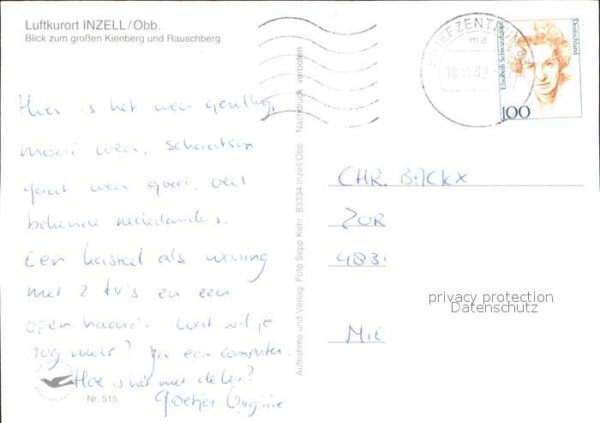 Luftkurort INZELL/Obb.
Blick zum großen Kienberg und Rauschberg
Hier is het weer gezellig,
mooi weer, schaatsen
gaat weer goed, veel
bekende nederlanders.
Een kasteel als woning
met 2 tv's en een
open haard. Wat wil je
nog meer? Ja een computer.
Hoe is het met de les?
Groetjes
Nr. 515
Aufnahme und Verlag: Foto Sepp Kehr, 83334 Inzell/Obb. · Nachdruck verboten
BRIEFZENTRUM
ma
Elisabeth Schwarzhaupt
Deutschland
100
CHR. BACKX
ZUR
483
MIE
privacy protection
Datenschutz